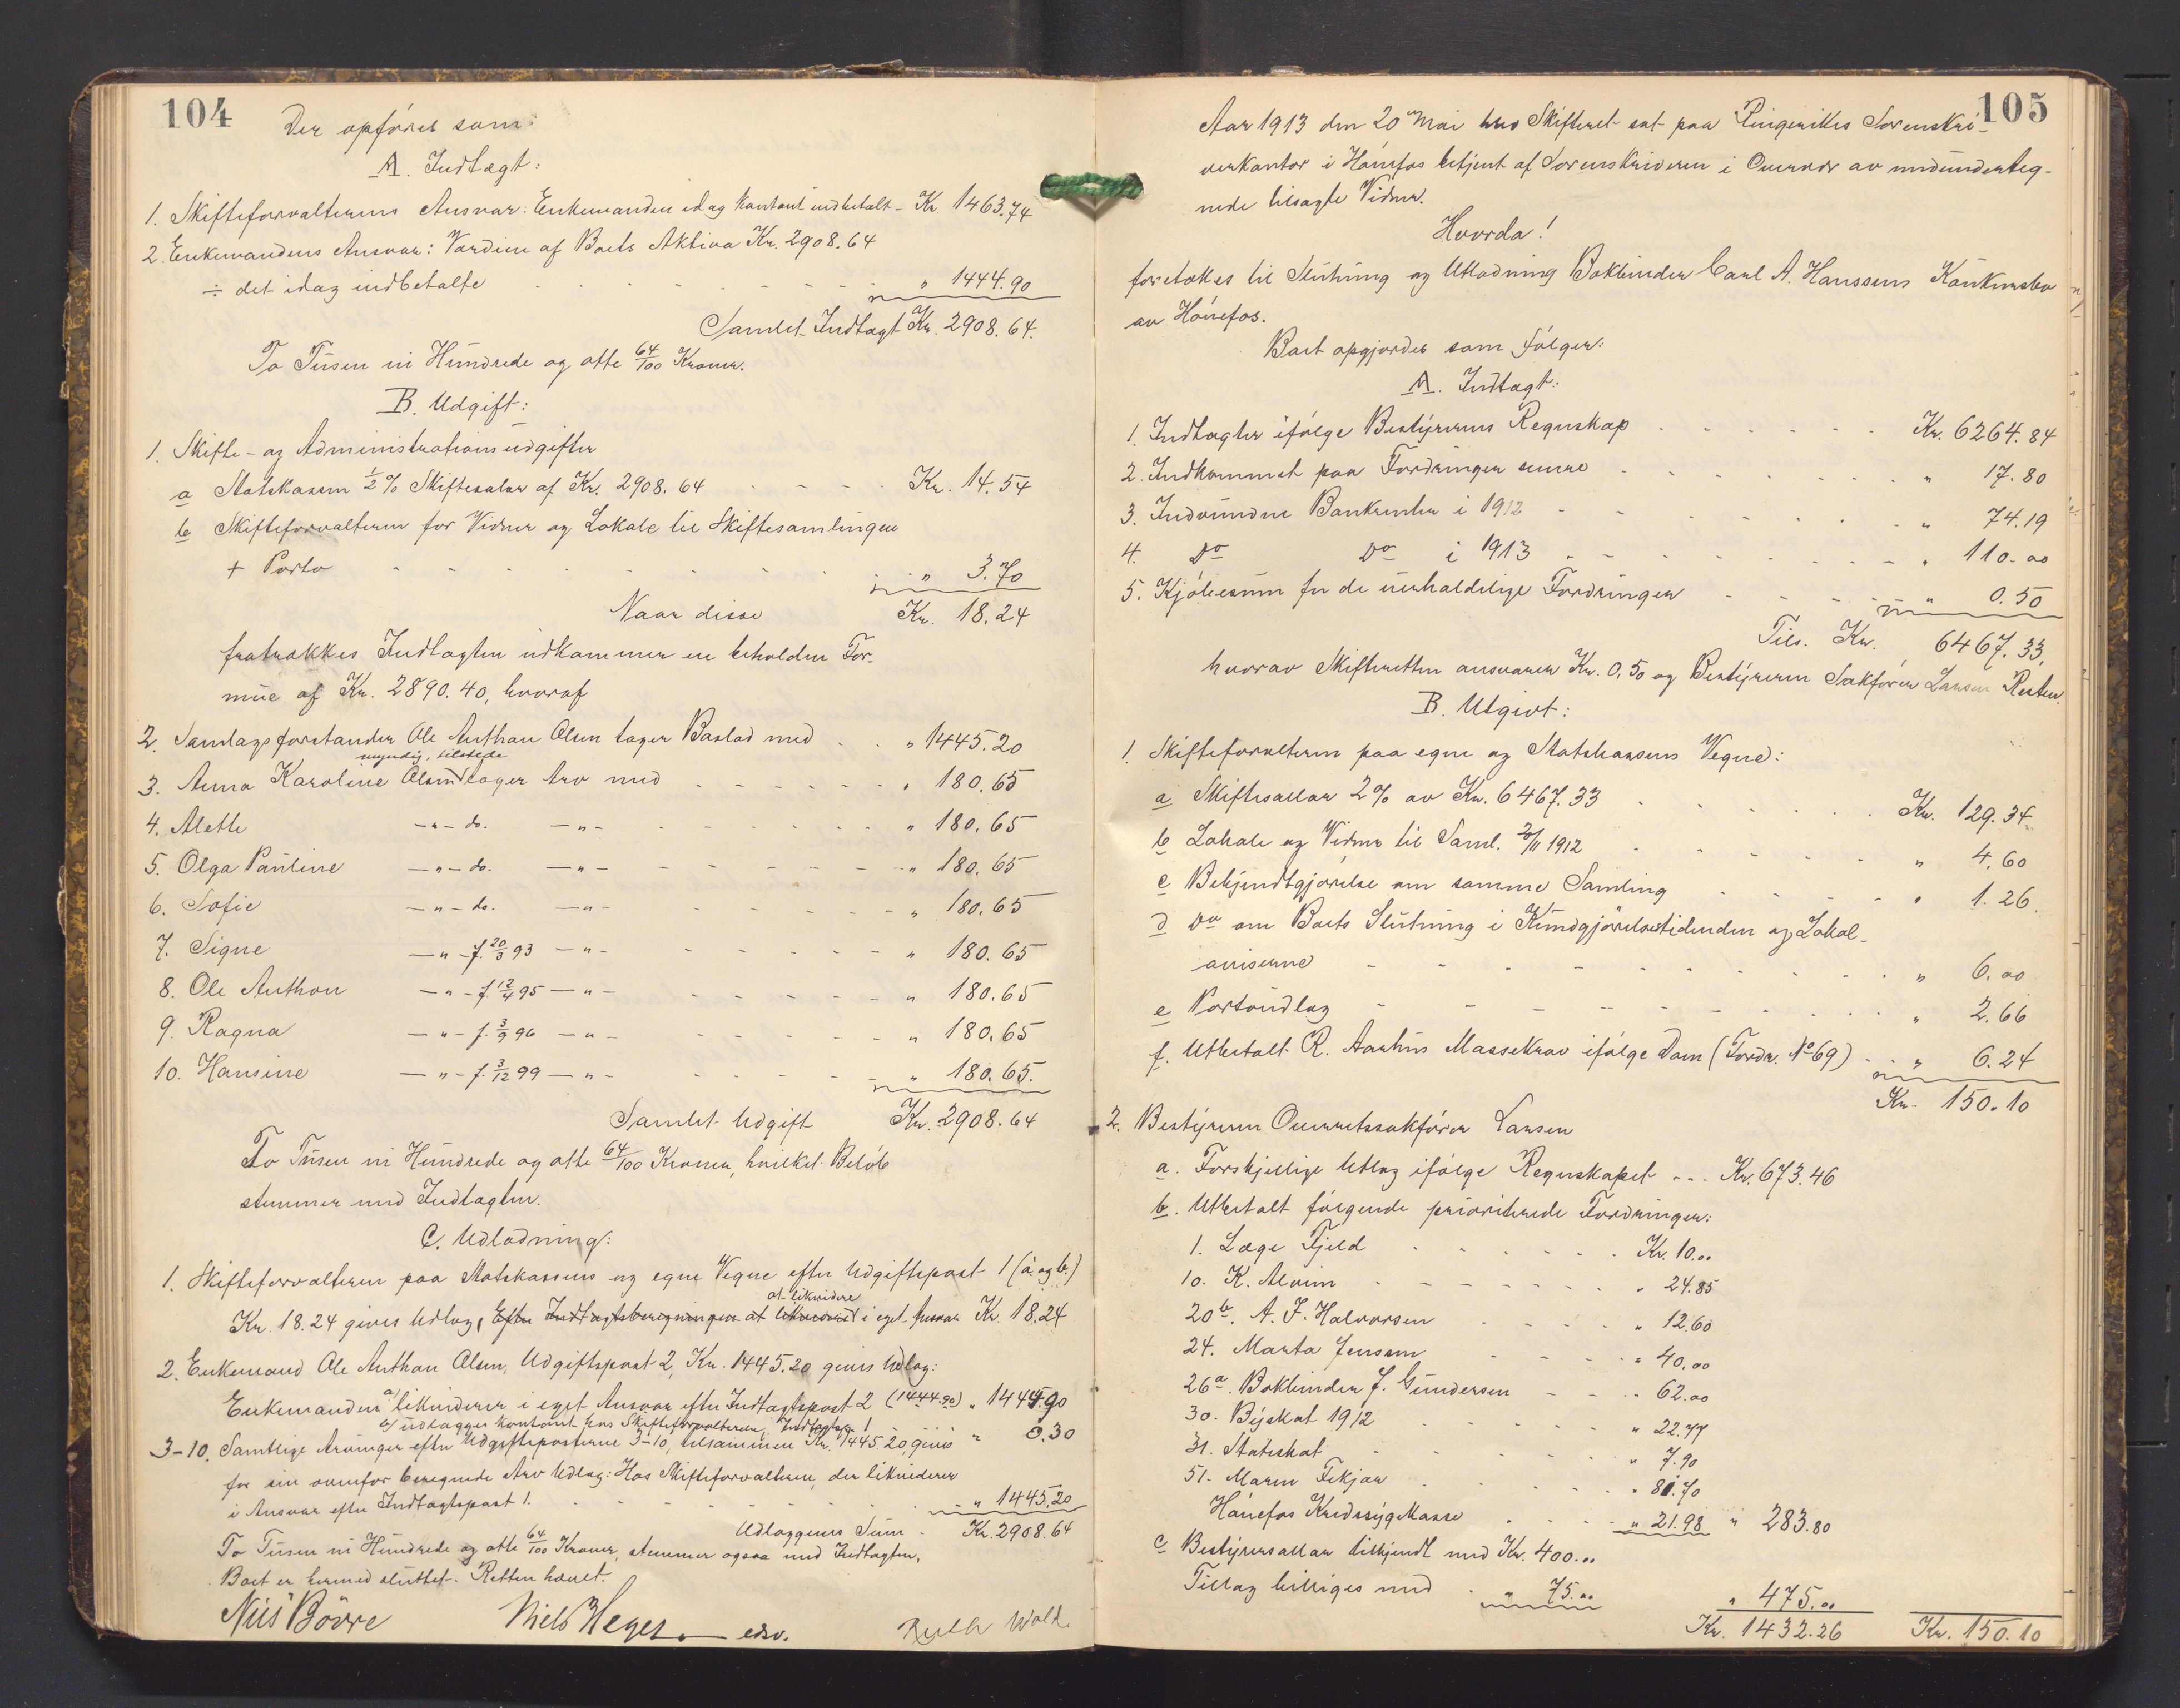 104
Der opføres som:
A. Indtægt:
1. Skifteforvalterens Ansvar: Enkemanden idag kontant indbetalt - Kr. 1463.74
2. Enkemandens Ansvar: Værdien af Boets Aktiva Kr. 2908.64
÷ det idag indbetalte " 1444.90
Samlet Indtægt Kr. 2908.64.
To Tusen ni Hundrede og otte 64/100 Kroner.
B. Udgift:
1. Skifte- og Administrationsudgifter
a Statskassen 1/2 % Skiftesalær af Kr. 2908.64 Kr. 14.54
b Skifteforvalteren for Vidner og Lokale til Skiftesamlingen
+ Porto " 3.70
Naar disse Kr. 18.24
fratrækkes Indtægten udkommer en beholden For-
mue af Kr. 2890.40, hvoraf
2. Samlagsforstander Ole Anthon Olsen tager Boslod med " 1445.20
myndig, tilstede
3. Anna Karoline Olsen tager Arv med " 180.65
4. Alette -"- do. -"- " 180.65
5. Olga Pauline -"- do. -"- " 180.65
6. Sofie -"- do. -"- " 180.65
7. Signe -"- f. 20/3 93 -"- " 180.65
8. Ole Anthon -"- f. 12/4 95 -"- " 180.65
9. Ragna -"- f. 3/9 96 -"- " 180.65
10. Hansine -"- f. 3/12 99 -"- " 180.65.
Samlet Udgift Kr. 2908.64
To Tusen ni Hundrede og otte 64/100 Kroner, hvilket Beløb
stemmer med Indtægten.
C. Udlodning:
1. Skifteforvalteren paa Statskassens og egne Vegne efter Udgiftspost 1 (a. og b.)
at likvidere
Kr. 18.24 gives Udlæg, Efter Indtægtsberegningen at likvideret i eget Ansvar Kr. 18.24
2. Enkemand Ole Anthon Olsen, Udgiftspost 2, Kr. 1445.20 gives Udlæg:
Enkemanden a/ likviderer i eget Ansvar efter Indtægtspost 2 (1444.90) " 1444.90
b/ udlægges kontant hos Skifteforvalteren, Indtægtspost 1 " 0.30
3-10. Samtlige Arvinger efter Udgiftsposterne 3-10, tilsammen Kr. 1445.20, gives
for sin ovenfor beregnede Arv Udlæg: Hos Skifteforvalteren, der likviderer
i Ansvar efter Indtægtspost 1. " 1445.20
Udlæggenes Sum - Kr. 2908.64
To Tusen ni Hundrede og otte 64/100 Kroner, stemmer ogsaa med Indtægten.
Boet er hermed sluttet. Retten hævet.
Nils Børre Niels Heyer edsv. Ruth Wold.
105
Aar 1913 den 20 Mai blev Skifteret sat paa Ringerikes Sorenskri-
verkontor i Hønefos betjent af Sorenskriveren i Overvær av medunderteg-
nede tilsagte Vidner.
Hvorda!
foretokes til Slutning og Utlodning Bokbinder Carl A. Hanssens Konkursbo
av Hønefos.
Boet opgjordes som følger:
A. Indtægt:
1. Indtægter ifølge Bestyrerens Regnskap Kr. 6264.84
2. Indkommet paa Fordringer senere " 17.80
3. Indvundne Bankrenter i 1912 " 74.19
4. Do Do i 1913 " 110.00
5. Kjøbesum for de uerholdelige Fordringer " 0.50
Tils. Kr. 6467.33.
hvorav Skifteretten ansvarer Kr. 0.50 og Bestyreren Sakfører Larsen Resten.
B. Utgivt:
1. Skifteforvalteren paa egne og Statskassens Vegne:
a Skiftesallær 2% av Kr. 6467.33 Kr. 129.34
b Lokale og Vidner til Saml. 20/11 1912 " 4.60
c Bekjendtgjørelse om samme Samling " 1.26
d Do om Boets Slutning i Kundgjørelsestidenden og Lokal-
aviserne " 6.00
e Portoudlæg " 2.66
f. Utbetalt R. Aarhus Massekrav ifølge Dom (Fordr. No 69) " 6.24
Kr. 150.10
2. Bestyreren Overretssakfører Larsen
a. Forskjellige Utlæg ifølge Regnskapet --- Kr. 673.46
b. Utbetalt følgende prioriterede Fordringer:
1. Læge Fjeld Kr. 10.00
10. K. Alvim " 24.85
20b. A. F. Halvorsen " 12.60
24. Marta Jensen " 40.00
26a. Bokbinder J. Gundersen " 62.00
30. Byskat 1912 " 22.77
31. Statsskat " 7.90
51. Maren Fekjær " 81.70
Hønefos Kredssygekasse " 21.98 " 283.80
c Bestyrersallær tilkjendt med Kr. 400.00
Tillæg billiges med " 75.00 " 475.00
Kr. 1432.26 Kr. 150.10